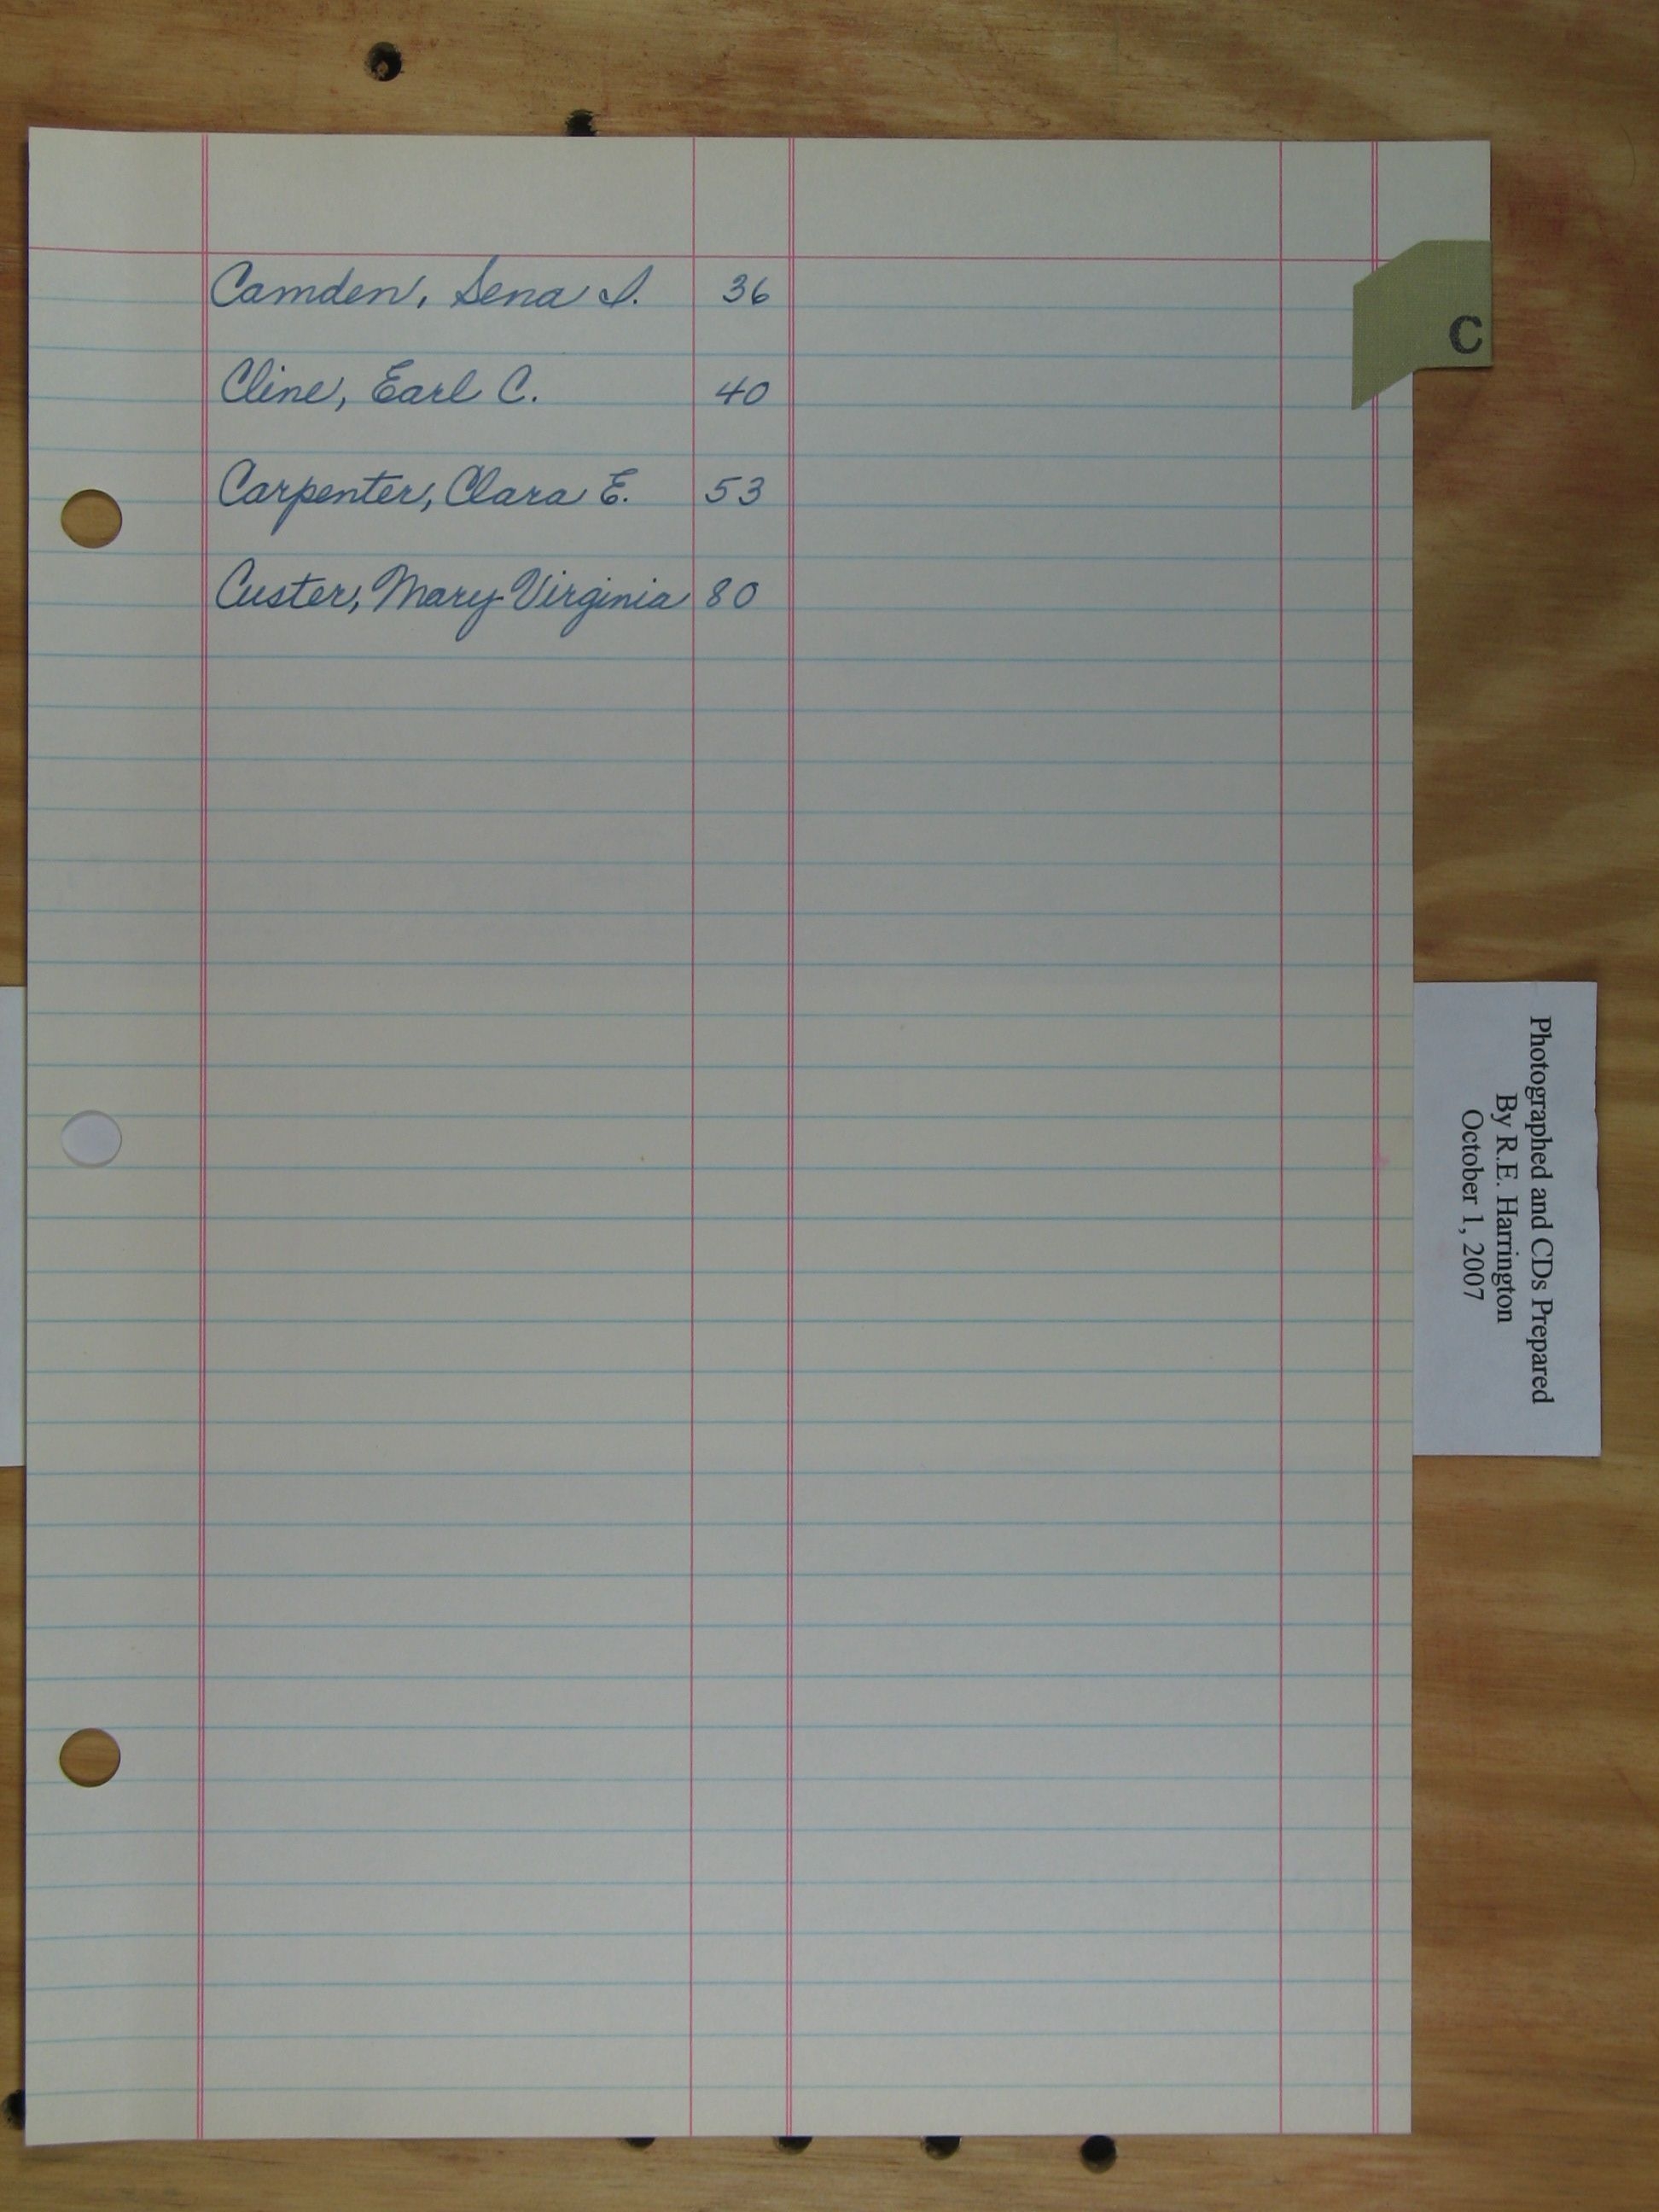 Camden, Sena I. 36
C
Cline, Earl C. 40
Carpenter, Clara E. 53
Custer, Mary Virginia 80
Photographed and CDs Prepared
By R.E. Harrington
October 1, 2007